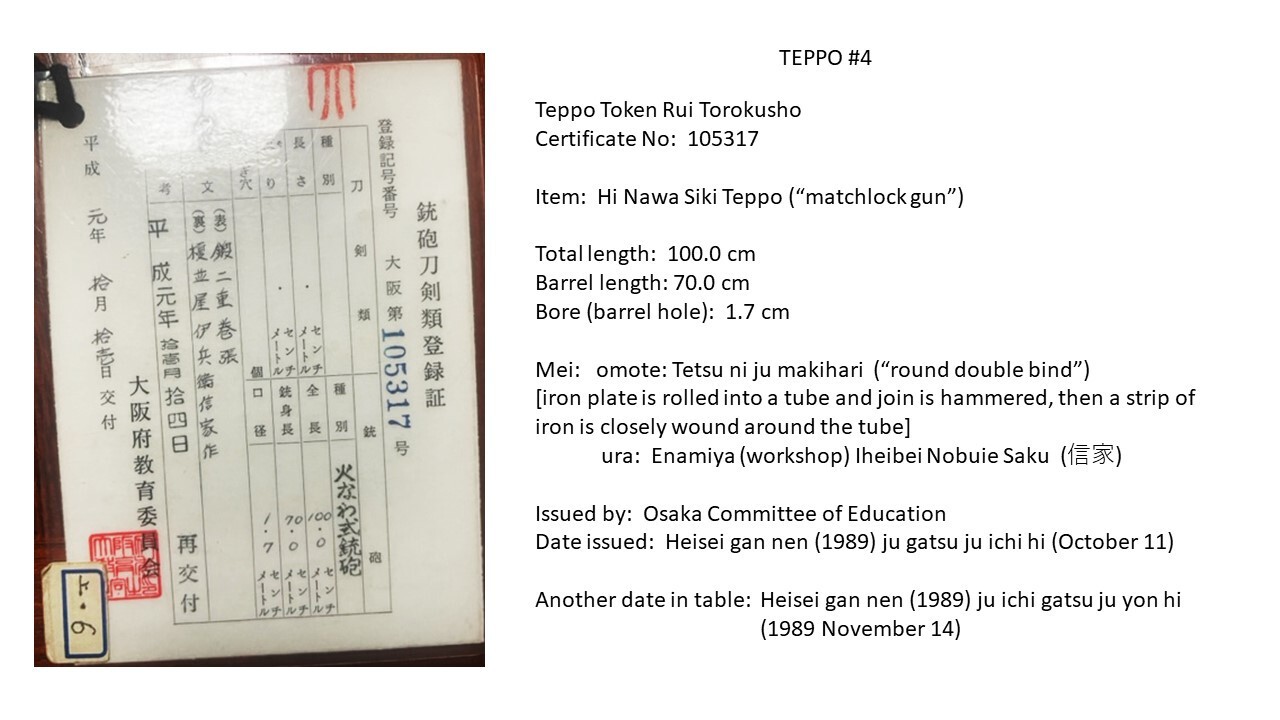 TEPPO #4
登録記号番号 大阪第105317号
銃砲刀剣類登録証
刀剣類
種別
長さ
センチメートル
り
センチメートル
穴
個
文
(表)鍛二重巻張
(裏)榎並屋伊兵衛信家作
考
平成元年拾壱月拾四日
再交付
銃砲
種別
火なわ式銃砲
全長
100.0
センチメートル
銃身長
70.0
センチメートル
口径
1.7
センチメートル
平成元年拾月拾壱日交付
大阪府教育委員会
Teppo Token Rui Torokusho
Certificate No: 105317
Item: Hi Nawa Siki Teppo (“matchlock gun”)
Total length: 100.0 cm
Barrel length: 70.0 cm
Bore (barrel hole): 1.7 cm
Mei: omote: Tetsu ni ju makihari (“round double bind”)
[iron plate is rolled into a tube and join is hammered, then a strip of
iron is closely wound around the tube]
ura: Enamiya (workshop) Iheibei Nobuie Saku (信家)
Issued by: Osaka Committee of Education
Date issued: Heisei gan nen (1989) ju gatsu ju ichi hi (October 11)
Another date in table: Heisei gan nen (1989) ju ichi gatsu ju yon hi
(1989 November 14)